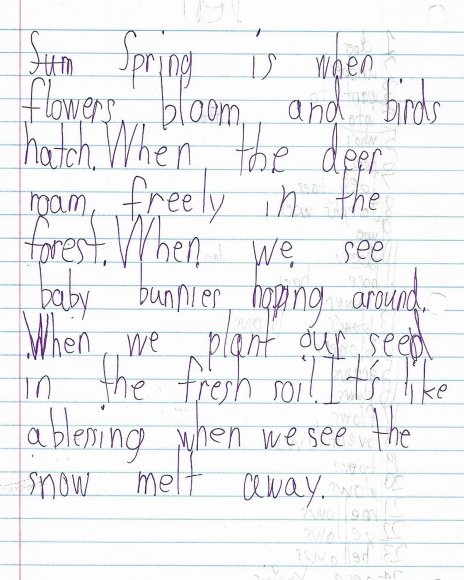 Sum Spring is when
flowers bloom and birds
hatch. When the deer
roam freely in the
forest. When we see
baby bunnies hoping around.
When we plant our seed
in the fresh soil. It's like
a blessing when we see the
snow melt away.